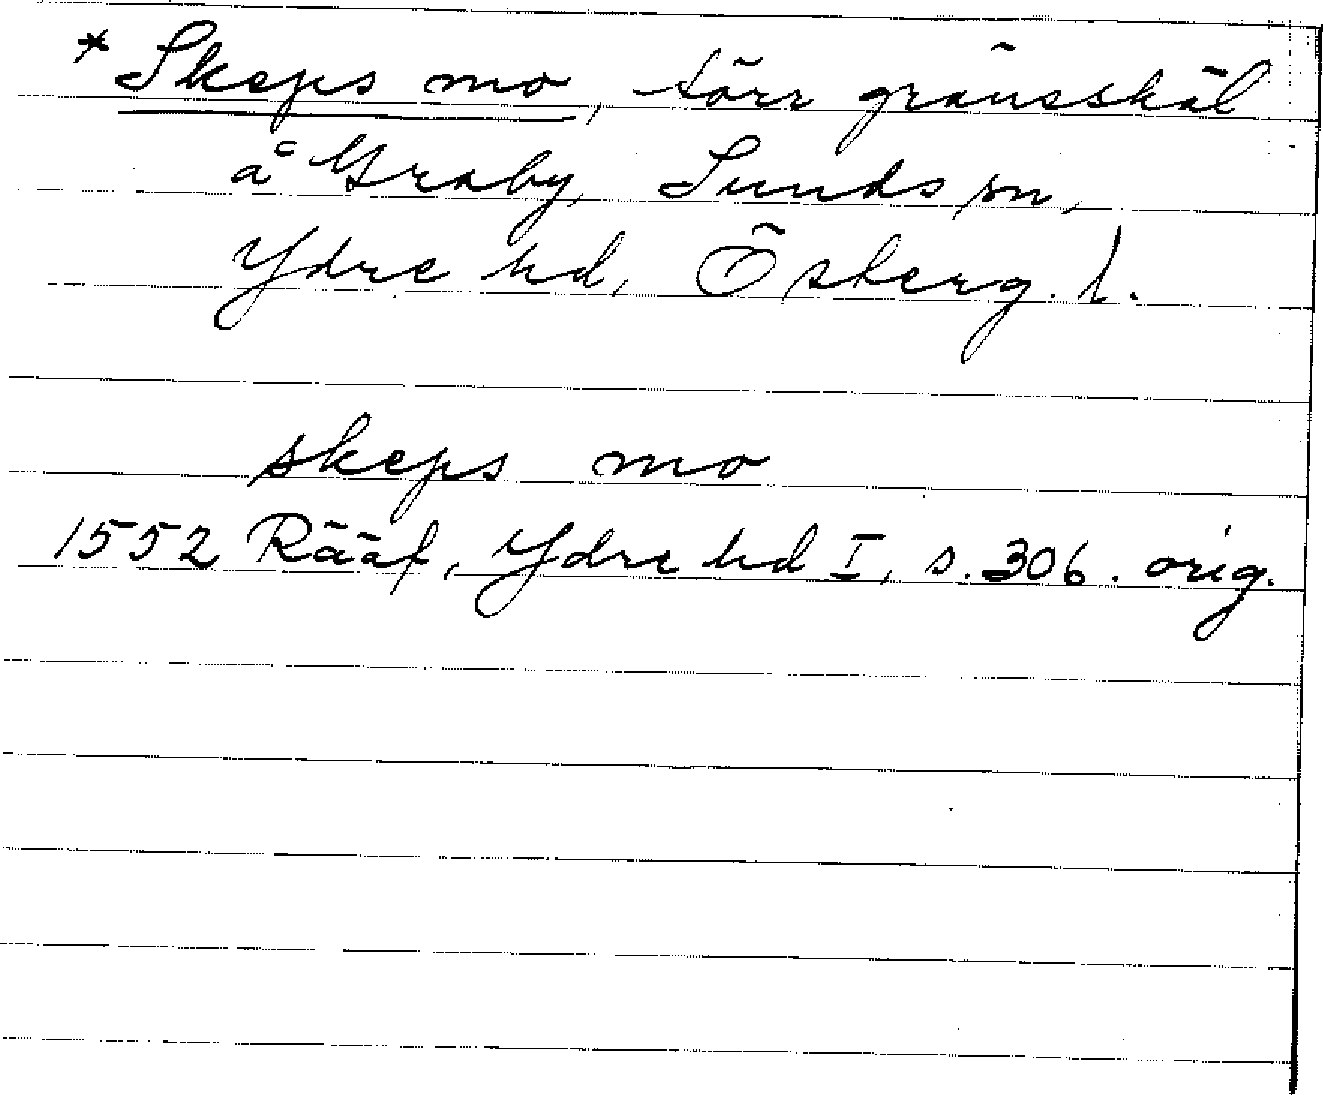 * Skeps mo, törr gränsskäl
å Graby, Sunds sn,
Ydre hd, Österg. l.
skeps mo
1552 Rääf, Ydre hd I, s. 306. orig.